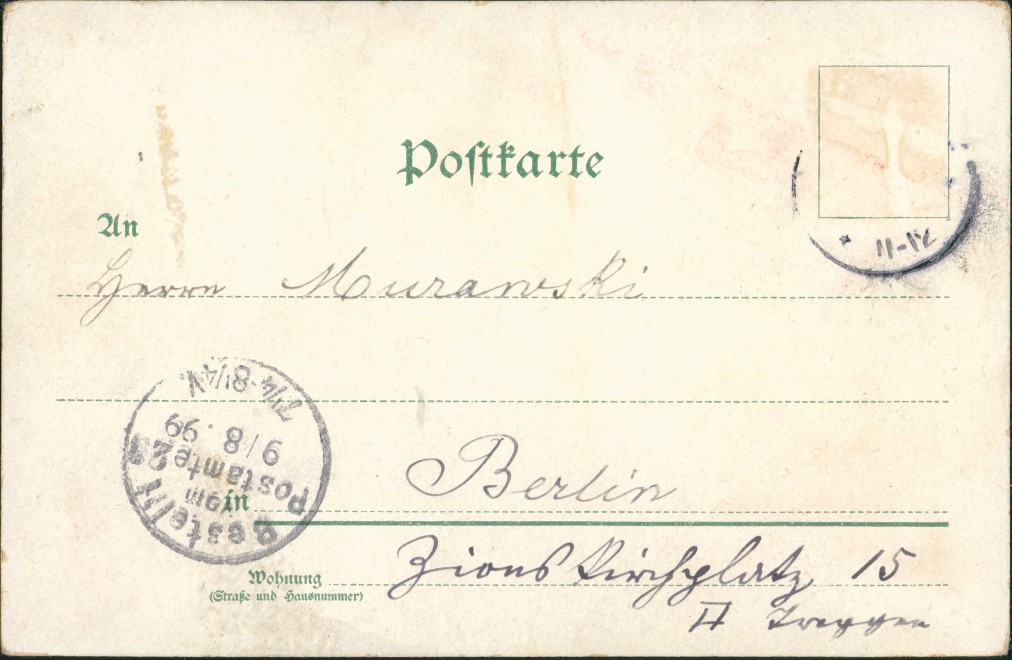 Postkarte
11-12
An
Herrn Murawski
Bestellt
vom
Postamte 21
9/8.99
7¼-8¼V.
in Berlin
Wohnung
(Straße und Hausnummer)
Zionskirchplatz 15
II Treppen